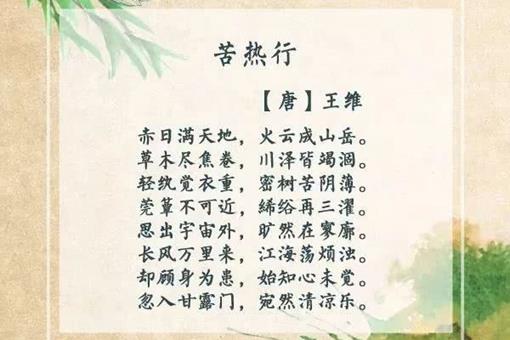 苦热行
【唐】王维
赤日满天地，火云成山岳。
草木尽焦卷，川泽皆竭涸。
轻纨觉衣重，密树苦阴薄。
莞簟不可近，絺绤再三濯。
思出宇宙外，旷然在寥廓。
长风万里来，江海荡烦浊。
却顾身为患，始知心未觉。
忽入甘露门，宛然清凉乐。